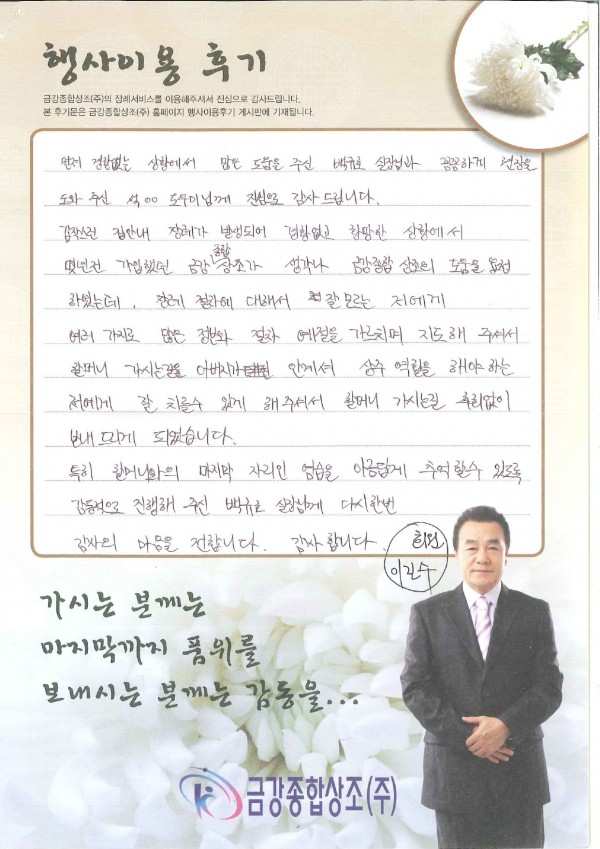 행사이용 후기
금강종합상조(주)의 장례서비스를 이용해주셔서 진심으로 감사드립니다.
본 후기문은 금강종합상조(주) 홈페이지 행사이용후기 게시판에 기재됩니다.
먼저 경황없는 상황에서 많은 도움을 주신 백규호 실장님과 꼼꼼하게 현장을
도와 주신 석○○ 도우미님께 진심으로 감사 드립니다.
갑작스런 집안내 장례가 발생되어 경황없고 황망한 상황에서
몇년전 가입했던 금강종합상조가 생각나 금강종합 상조의 도움을 요청
하였는데, 장례 절차에 대해서 잘 모르는 저에게
여러 가지로 많은 정보와 절차 예절을 가르치며 지도해 주셔서
할머니 가시는길을 아버지가 안계셔 상주 역할을 해야 하는
저에게 잘 치를수 있게 해주셔서 할머니 가시는길 후회없이
보내 드리게 되었습니다.
특히 할머니와의 마지막 자리인 염습을 아름답게 추억할수 있도록
감동적으로 진행해 주신 백규호 실장님께 다시한번
감사의 마음을 전합니다. 감사 합니다.
회원
가시는 분께는
마지막까지 품위를
보내시는 분께는 감동을...
금강종합상조(주)